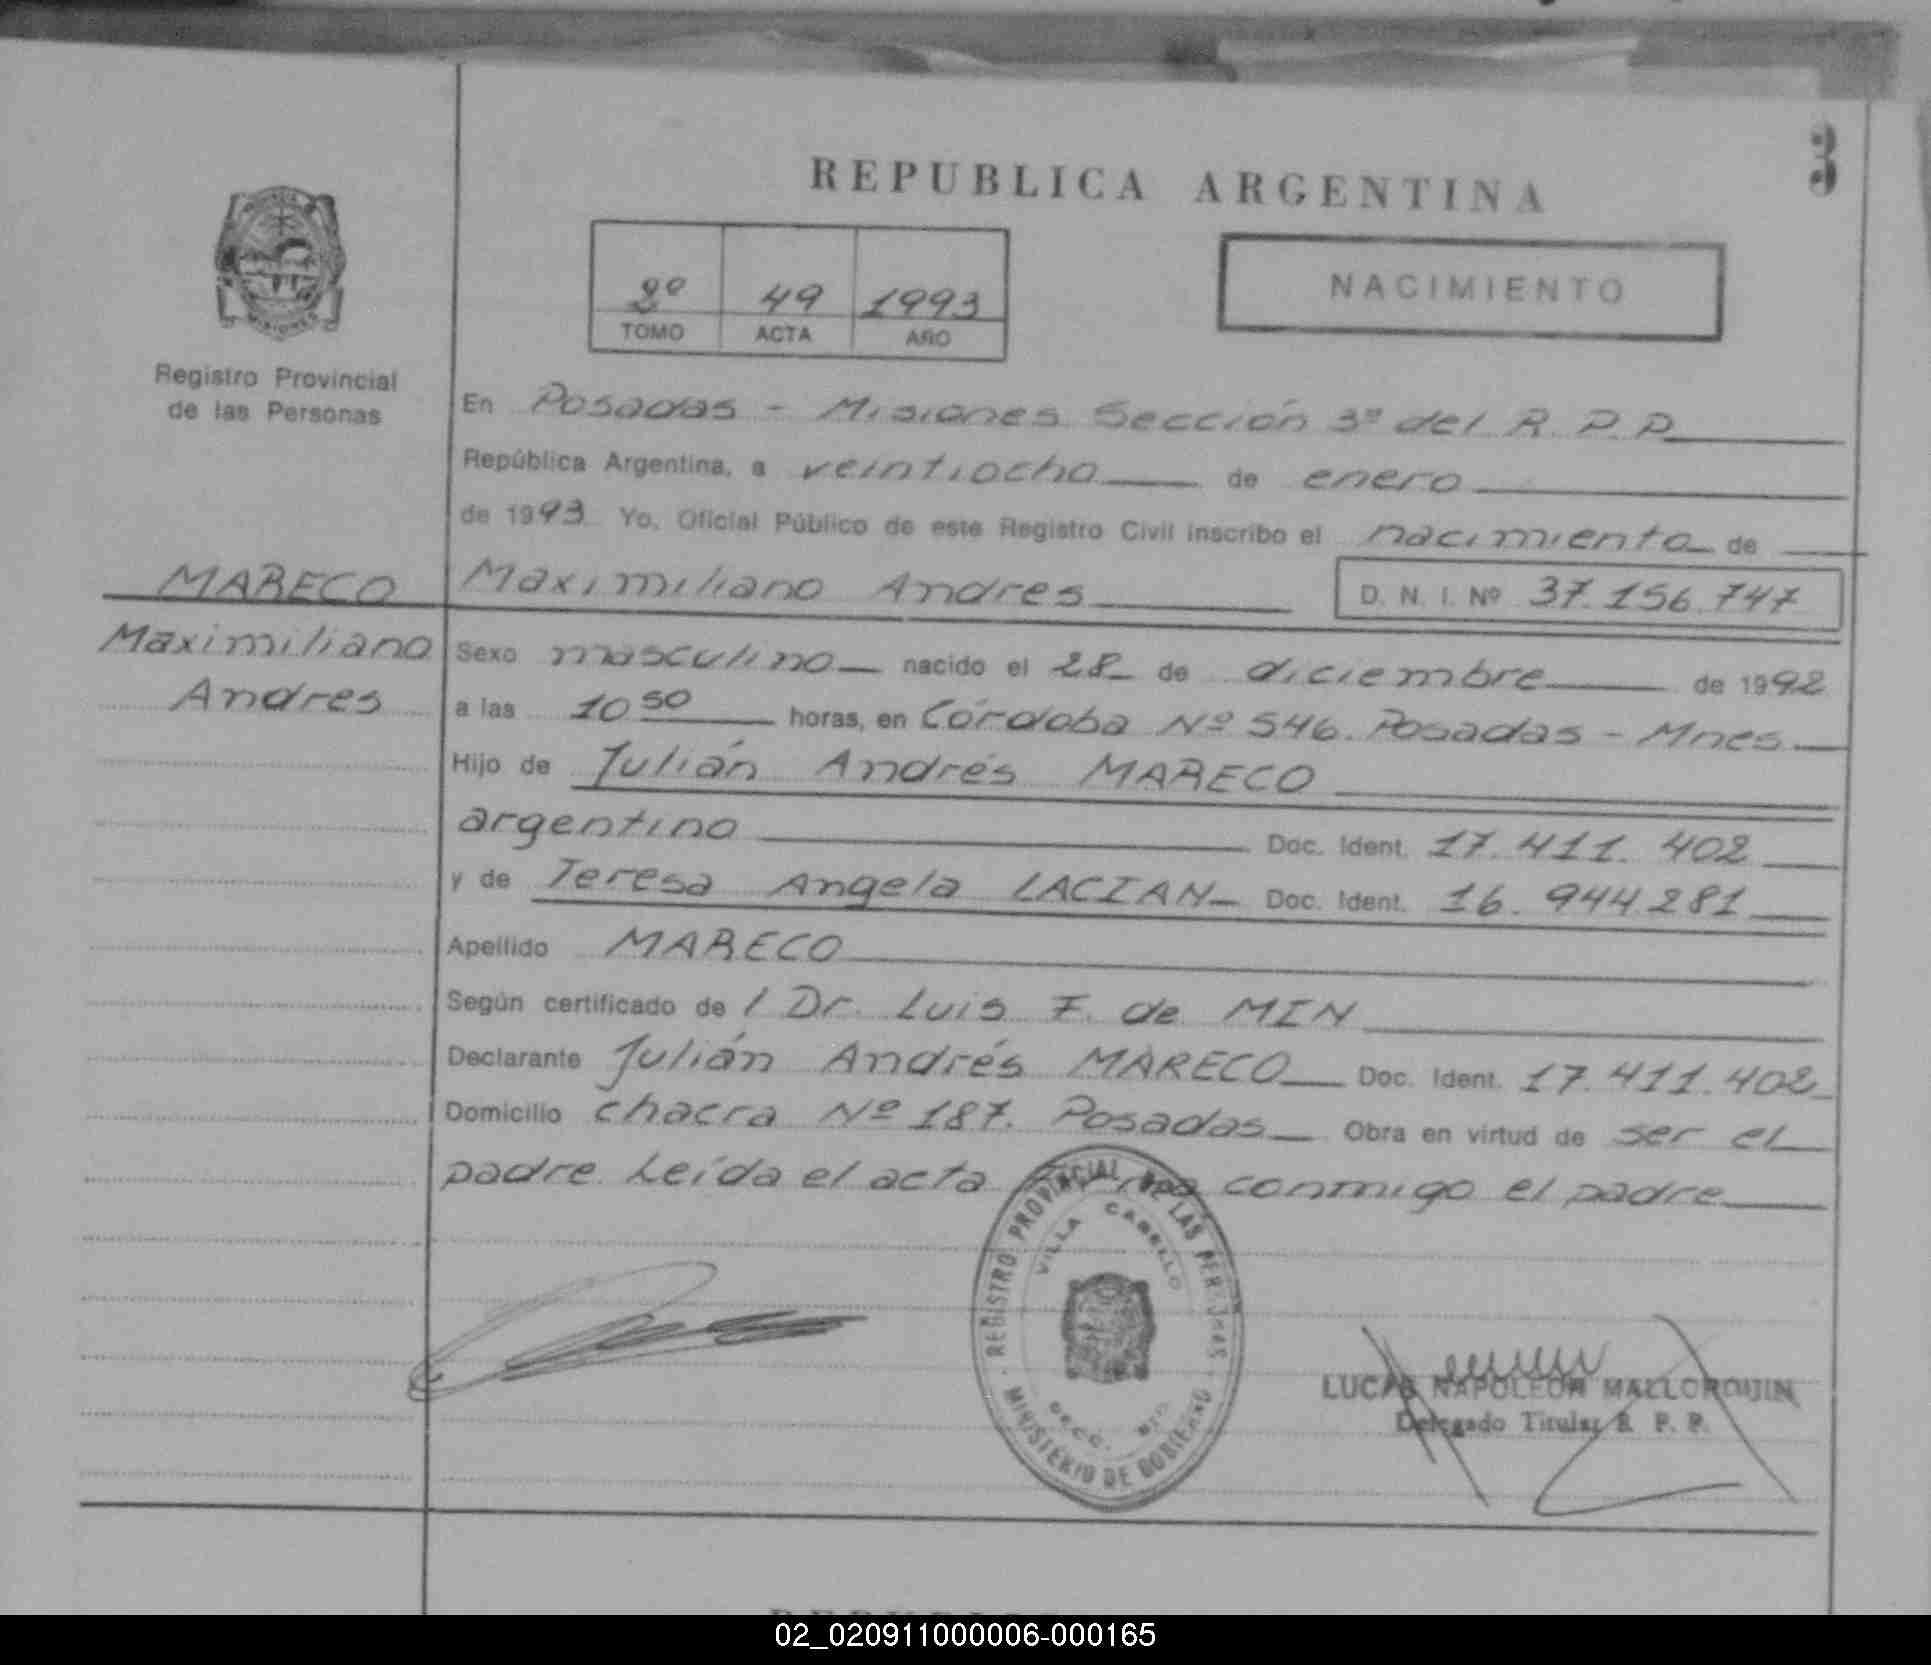 3
REPUBLICA ARGENTINA
2º 49 1993
TOMO ACTA AÑO
NACIMIENTO
MISIONES
Registro Provincial
de las Personas
En Posadas - Misiones Sección 3ª del R.P.P.
República Argentina, a veintiocho de enero
de 1993 Yo, Oficial Público de este Registro Civil inscribo el nacimiento de
MARECO Maximiliano Andres D. N. I. Nº 37.156.747
Maximiliano Sexo masculino nacido el 28 de diciembre de 1992
Andres a las 10 50 horas, en Córdoba Nº 546. Posadas - Mnes
Hijo de Julián Andrés MARECO
argentino Doc. Ident. 17.411.402
y de Teresa Angela LACIAN Doc. Ident. 16.944.281
Apellido MARECO
Según certificado de / Dr. Luis F. de MIN
Declarante Julián Andrés MARECO Doc. Ident. 17.411.402
Domicilio chacra Nº 187. Posadas Obra en virtud de ser el
padre. Leída el acta conmigo el padre
REGISTRO PROVINCIAL DE LAS PERSONAS
VILLA CABELLO
MINISTERIO DE GOBIERNO
LUCAS NAPOLEON MALLORQUIN
Delegado Titular R. P. P.
02_020911000006-000165